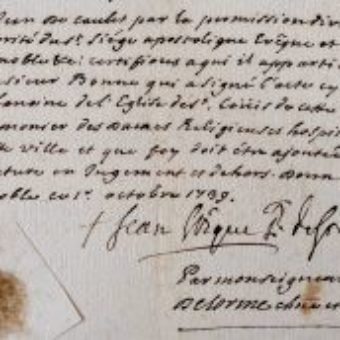 Jean De Caulet par la permission divi
orité du St. Siége apostolique Evêque et
noble &c: certifions a qui il apparti
sieur Bonne qui a signé l'acte cy
chanoine de l'Eglise de St. Louis de cette
monier des Dames Religieuses hospi
de ville et que foy doit être ajoutée
ature en Jugement et dehors. Donn
noble ce 1r. octobre 1739.
† Jean Evêque Pr. de Gre
Par monseigneur
Delorme